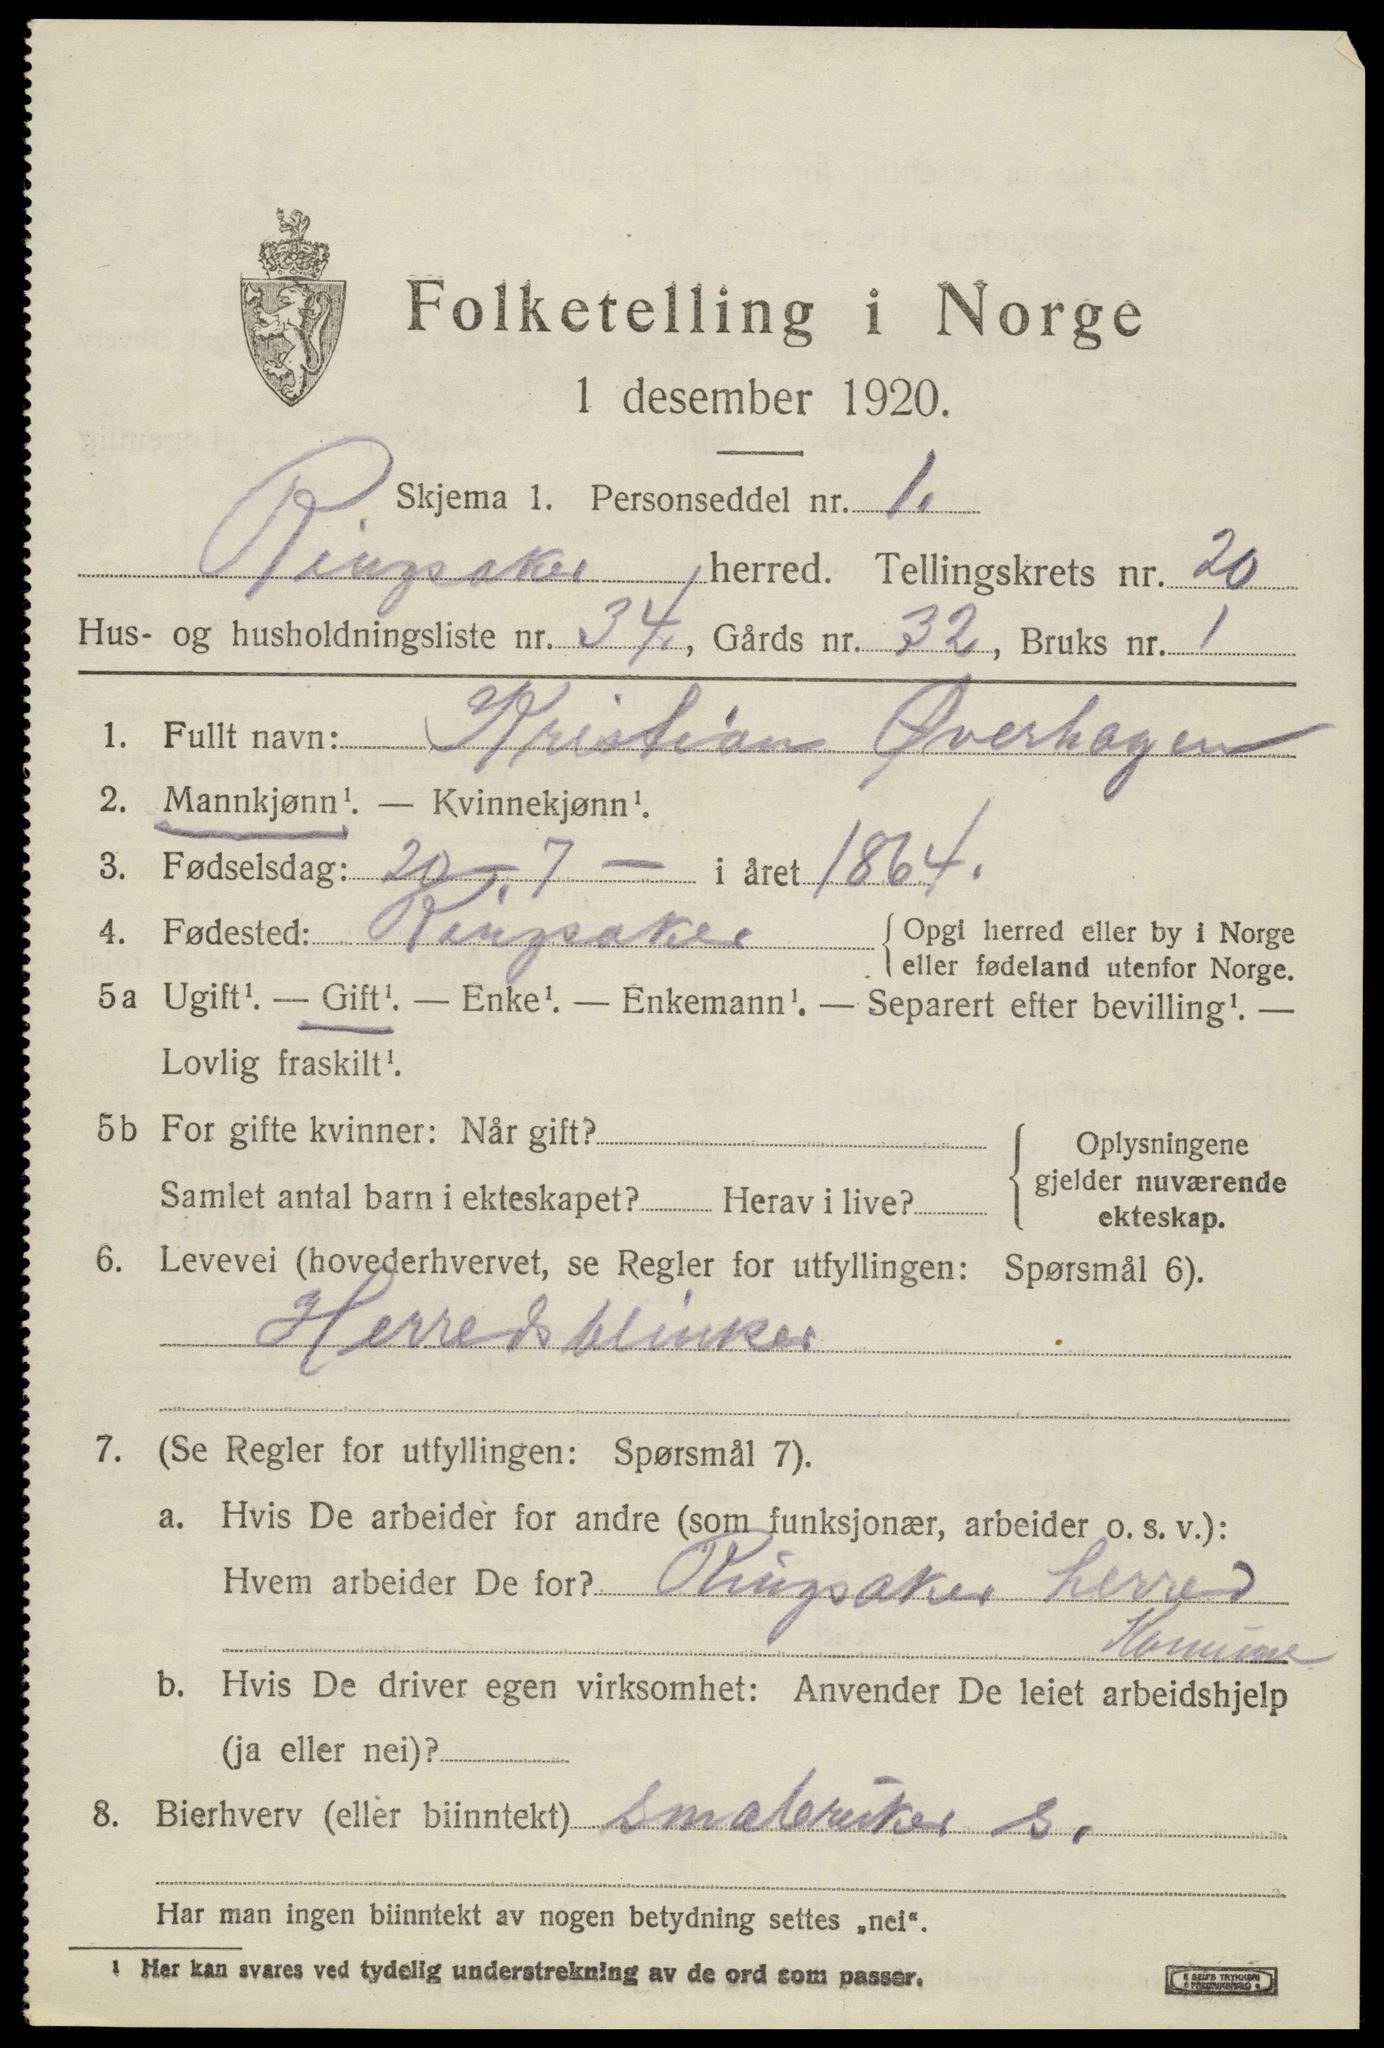 Folketelling i Norge
1 desember 1920.
Skjema 1. Personseddel nr. 1.
Ringsaker herred. Tellingskrets nr. 20
Hus- og husholdningsliste nr. 34., Gårds nr. 32, Bruks nr. 1
1. Fullt navn: Kristian Øverhagen
2. Mannkjønn¹. — Kvinnekjønn¹.
3. Fødselsdag: 20 - 7 — i året 1864.
4. Fødested: Ringsaker { Opgi herred eller by i Norge
eller fødeland utenfor Norge.
5a Ugift¹. — Gift¹. — Enke¹. — Enkemann¹. — Separert efter bevilling¹. —
Lovlig fraskilt¹.
5b For gifte kvinner: Når gift? { Oplysningene
gjelder nuværende
Samlet antal barn i ekteskapet? Herav i live? ekteskap.
6. Levevei (hovederhvervet, se Regler for utfyllingen: Spørsmål 6).
Herredsblinker
7. (Se Regler for utfyllingen: Spørsmål 7).
a. Hvis De arbeider for andre (som funksjonær, arbeider o. s. v.):
Hvem arbeider De for? Ringsaker herred
Komune
b. Hvis De driver egen virksomhet: Anvender De leiet arbeidshjelp
(ja eller nei)?
8. Bierhverv (eller biinntekt) smabruker s.
Har man ingen biinntekt av nogen betydning settes „nei“.
¹ Her kan svares ved tydelig understrekning av de ord som passer.